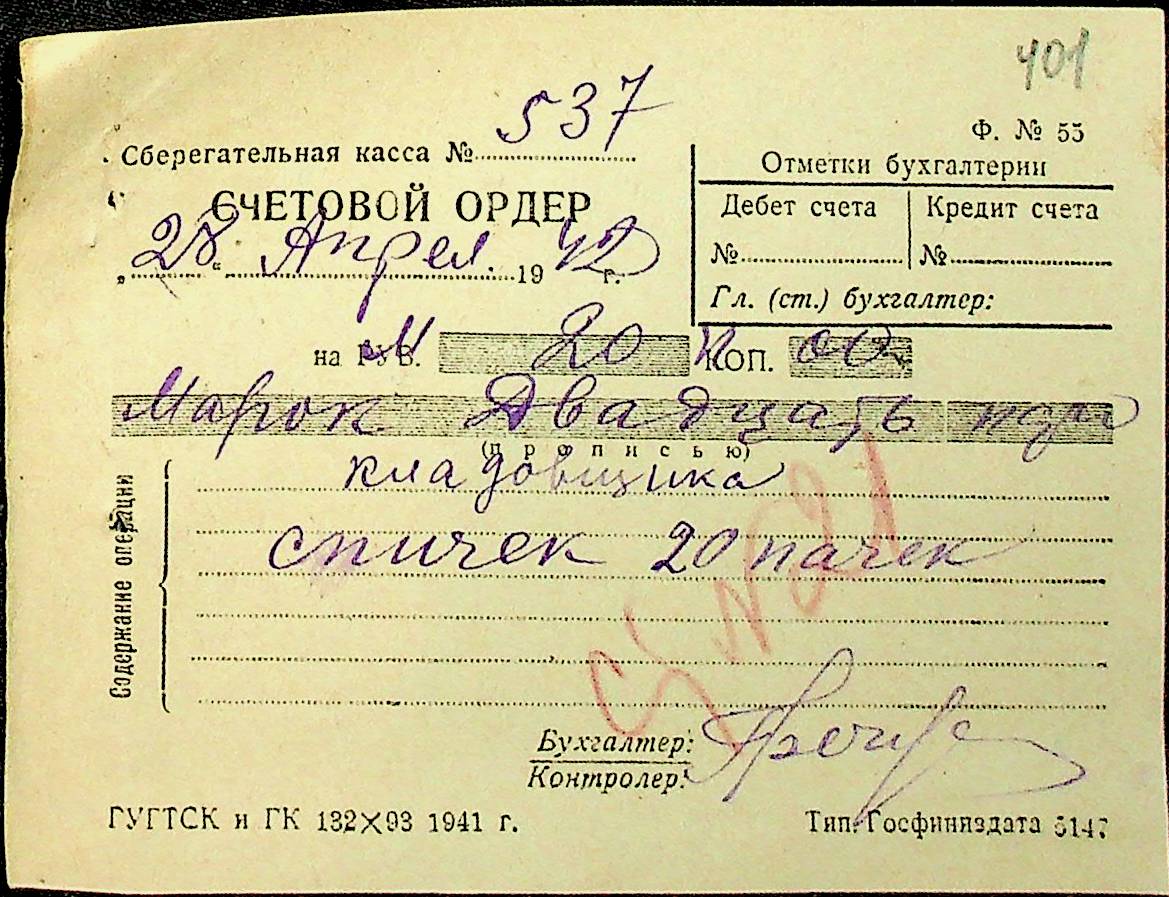 401
Ф. № 55
Сберегательная касса № 537
СЧЕТОВОЙ ОРДЕР
„28“ Апрел. 1942 г.
Отметки бухгалтерии
Дебет счета Кредит счета
№ №
Гл. (ст.) бухгалтер:
на РУБ. М 20 КОП. 00
Марок Двадцать
(прописью)
кладовщика
спичек 20 пачек
Содержание операции
Бухгалтер:
Контролер:
ГУГТСК и ГК 132×93 1941 г.
Тип. Госфиниздата 5147